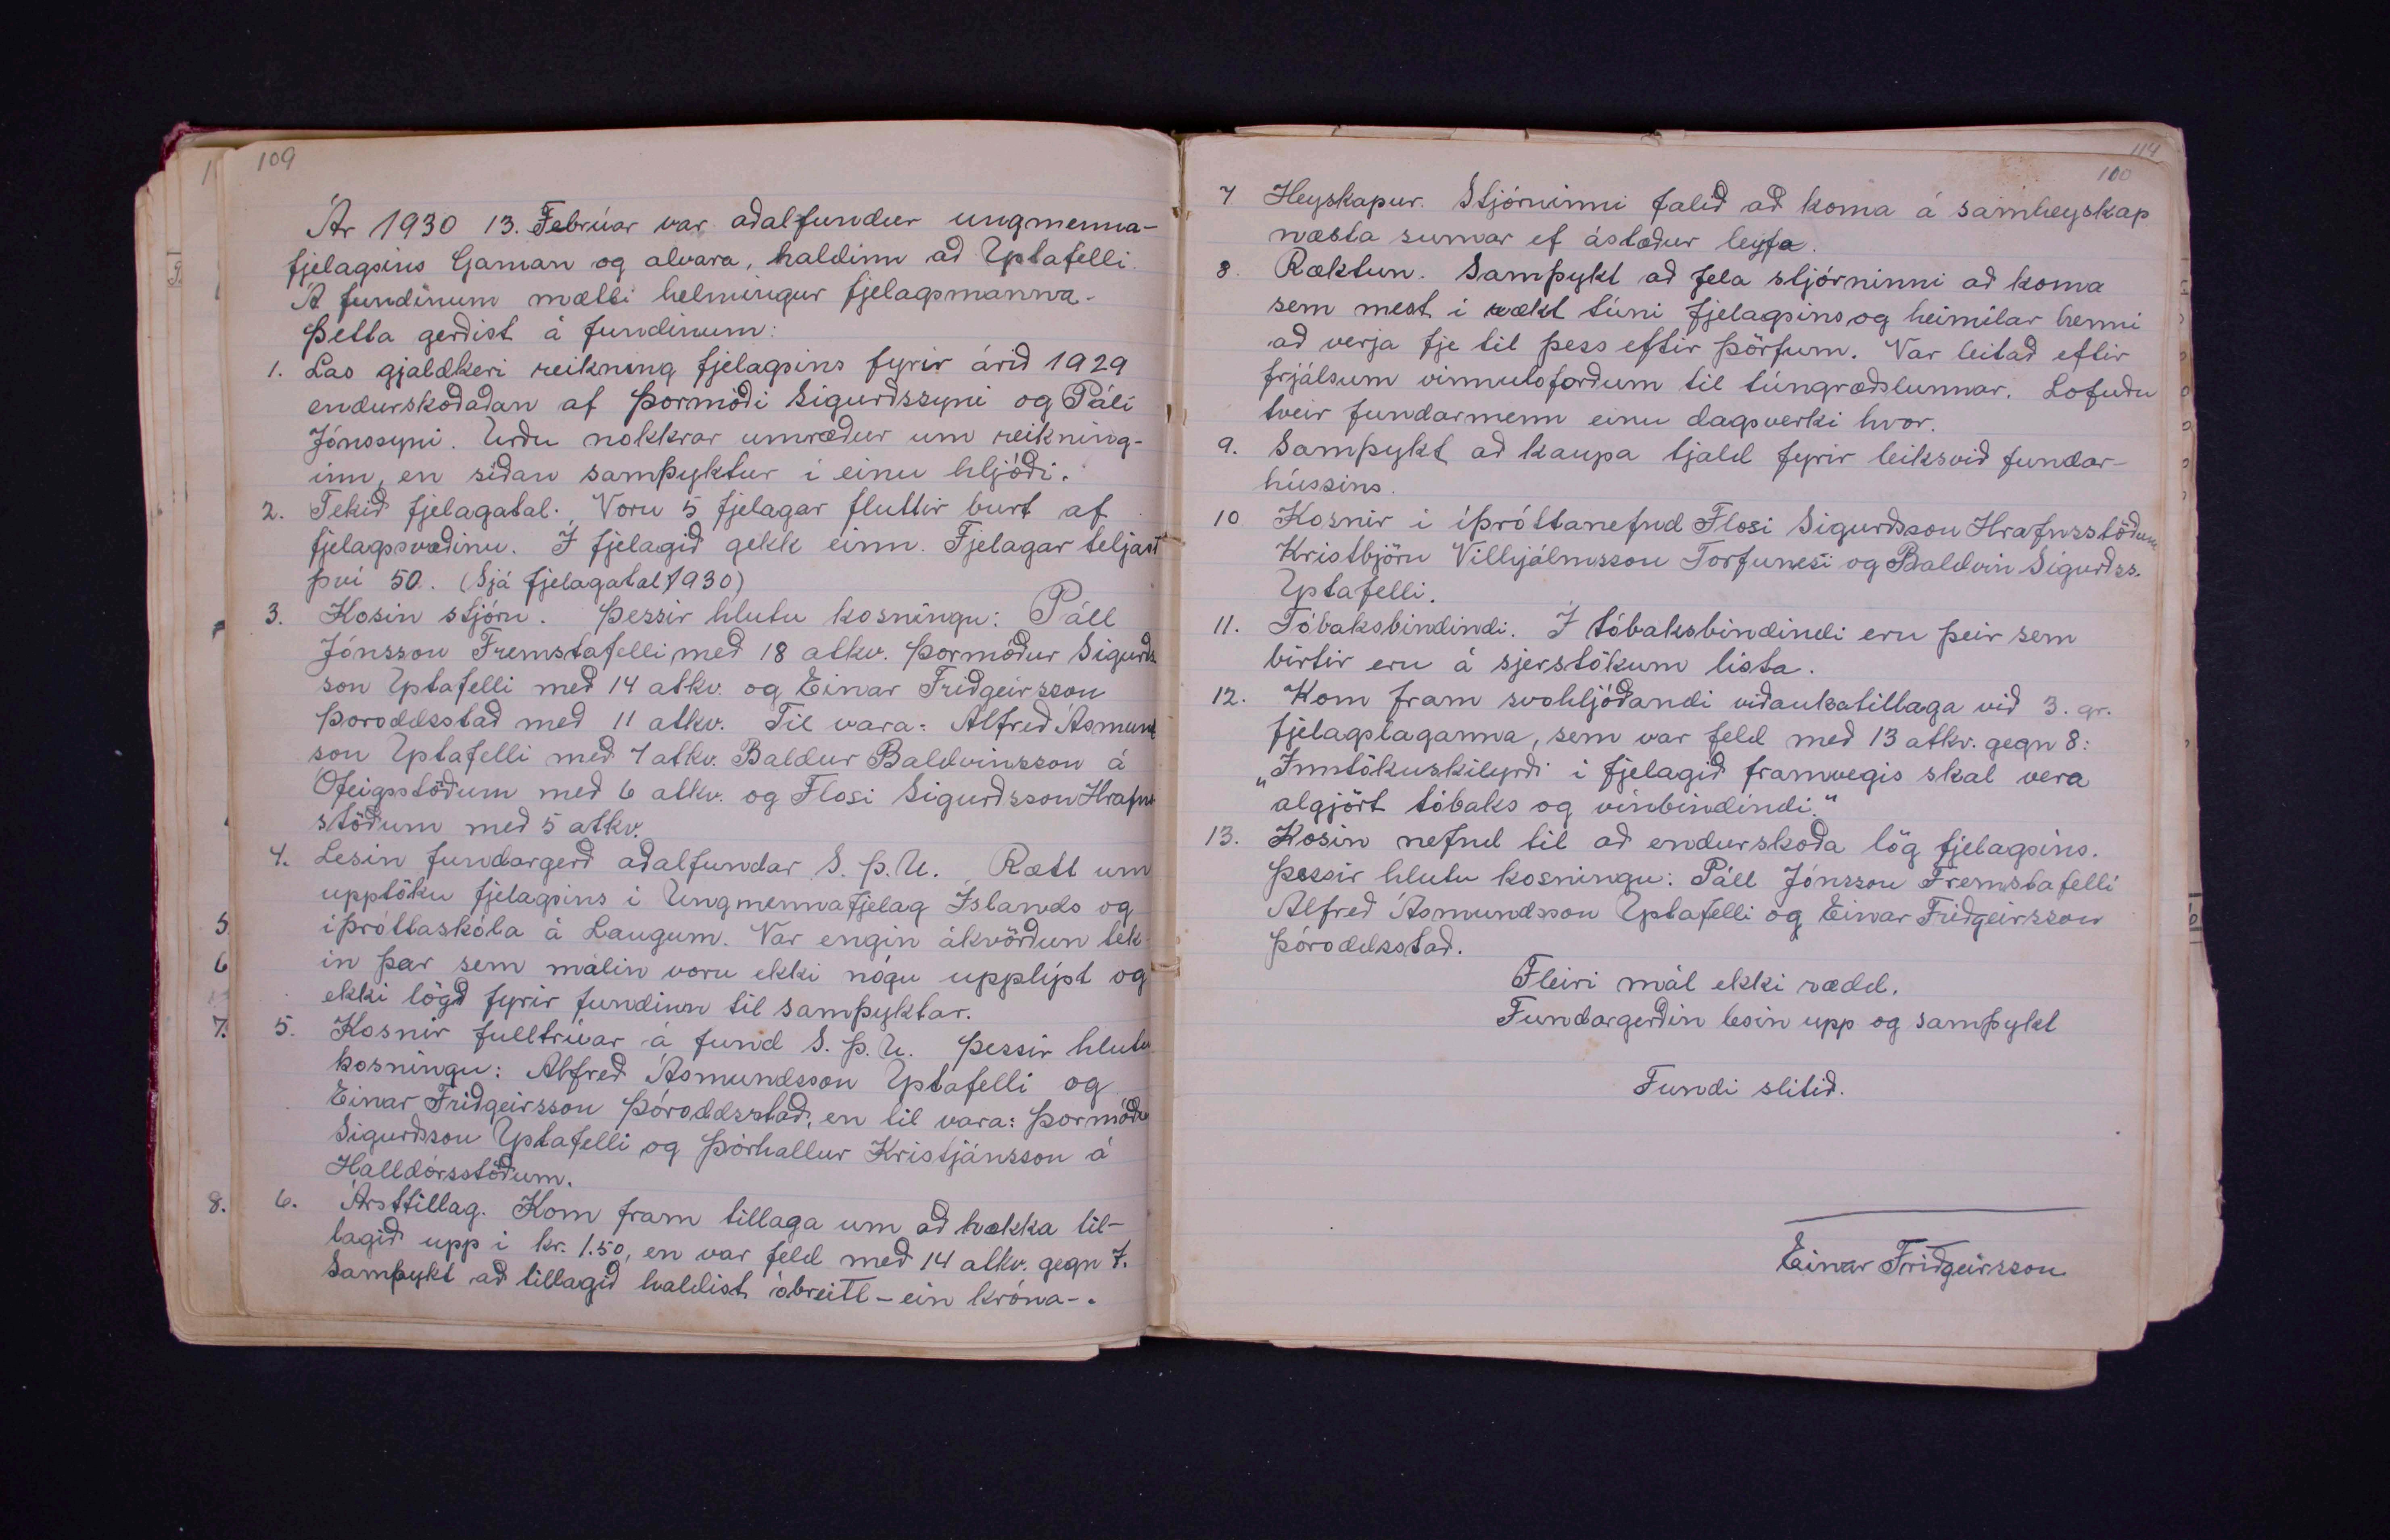 109
Ár 1930 13. Febrúar var aðalfundur ungmenna-
fjelagsins Gaman og alvara, haldinn að Yztafelli.
Á fundinum mætti helmingur fjelagsmanna.
Þetta gerðist á fundinum:
1. Las gjaldkeri reikning fjelagsins fyrir árið 1929
endurskoðaðan af Þormóði Sigurðssyni og Páli
Jónssyni. Urðu nokkrar umræður um reikning-
inn, en síðan samþyktur í einu hljóði.
2. Tekið fjelagatal. Voru 5 fjelagar fluttir burt af
fjelagssvæðinu. Í fjelagið gekk einn. Fjelagar teljast
því 50. (Sjá fjelagatal 1930)
3. Kosin stjórn. Þessir hlutu kosningu: Páll
Jónsson Fremstafelli með 18 atkv. Þormóður Sigurðs
son Yztafelli með 14 atkv. og Einar Friðgeirsson
Þoroddsstað með 11 atkv. Til vara: Alfreð Ásmund
son Yztafelli með 7 atkv. Baldur Baldvinsson á
Ófeigsstöðum með 6 atkv. og Flosi Sigurðsson Hrafns
stöðum með 5 atkv.
4. Lesin fundargerð aðalfundar S. Þ. U. Rætt um
upptöku fjelagsins í Ungmennafjelag Íslands og
íþróttaskóla á Laugum. Var engin ákvörðun tek-
in þar sem málin voru ekki nógu upplýst og
ekki lögð fyrir fundinn til samþyktar.
5. Kosnir fulltrúar á fund S. Þ. U. Þessir hlutu
kosningu: Alfreð Ásmundsson Yztafelli og
Einar Friðgeirsson Þóroddsstað, en til vara: Þormóður
Sigurðsson Yztafelli og Þórhallur Kristjánsson á
Halldórsstöðum.
6. Ársttillag. Kom fram tillaga um að hækka til-
lagið upp í kr. 1.50, en var feld með 14 atkv. gegn 7.
Samþykt að tillagið haldist óbreitt – ein króna –.
5
6
7.
8.
114
100
7 Heyskapur. Stjórninni falið að koma á samheyskap
næsta sumar ef ástæður leyfa.
8. Ræktun. Samþykt að fela stjórninni að koma
sem mest í rækt túni fjelagsins og heimilar henni
að verja fje til þess eftir þörfum. Var leitað eftir
frjálsum vinnuloforðum til túngræðslunnar. Lofuðu
tveir fundarmenn einu dagsverki hvor.
9. Samþykt að kaupa tjald fyrir leiksvið fundar-
hússins.
10 Kosnir í íþróttanefnd Flosi Sigurðsson Hrafnsstöðum
Kristbjörn Vilhjálmsson Torfunesi og Baldvin Sigurðss.
Yztafelli.
11. Tóbaksbindindi. Í tóbaksbindindi eru þeir sem
birtir eru á sjerstökum lista.
12. Kom fram svohljóðandi viðaukatillaga við 3. gr.
fjelagslaganna, sem var feld með 13 atkv. gegn 8:
„Inntökuskilyrði í fjelagið framvegis skal vera
algjört tóbaks og vínbindindi."
13. Kosin nefnd til að endurskoða lög fjelagsins.
Þessir hlutu kosningu: Páll Jónsson Fremstafelli
Alfreð Ásmundsson Yztafelli og Einar Friðgeirsson
Þóroddsstað.
Fleiri mál ekki rædd.
Fundargerðin lesin upp og samþykt
Fundi slitið.
Einar Friðgeirsson